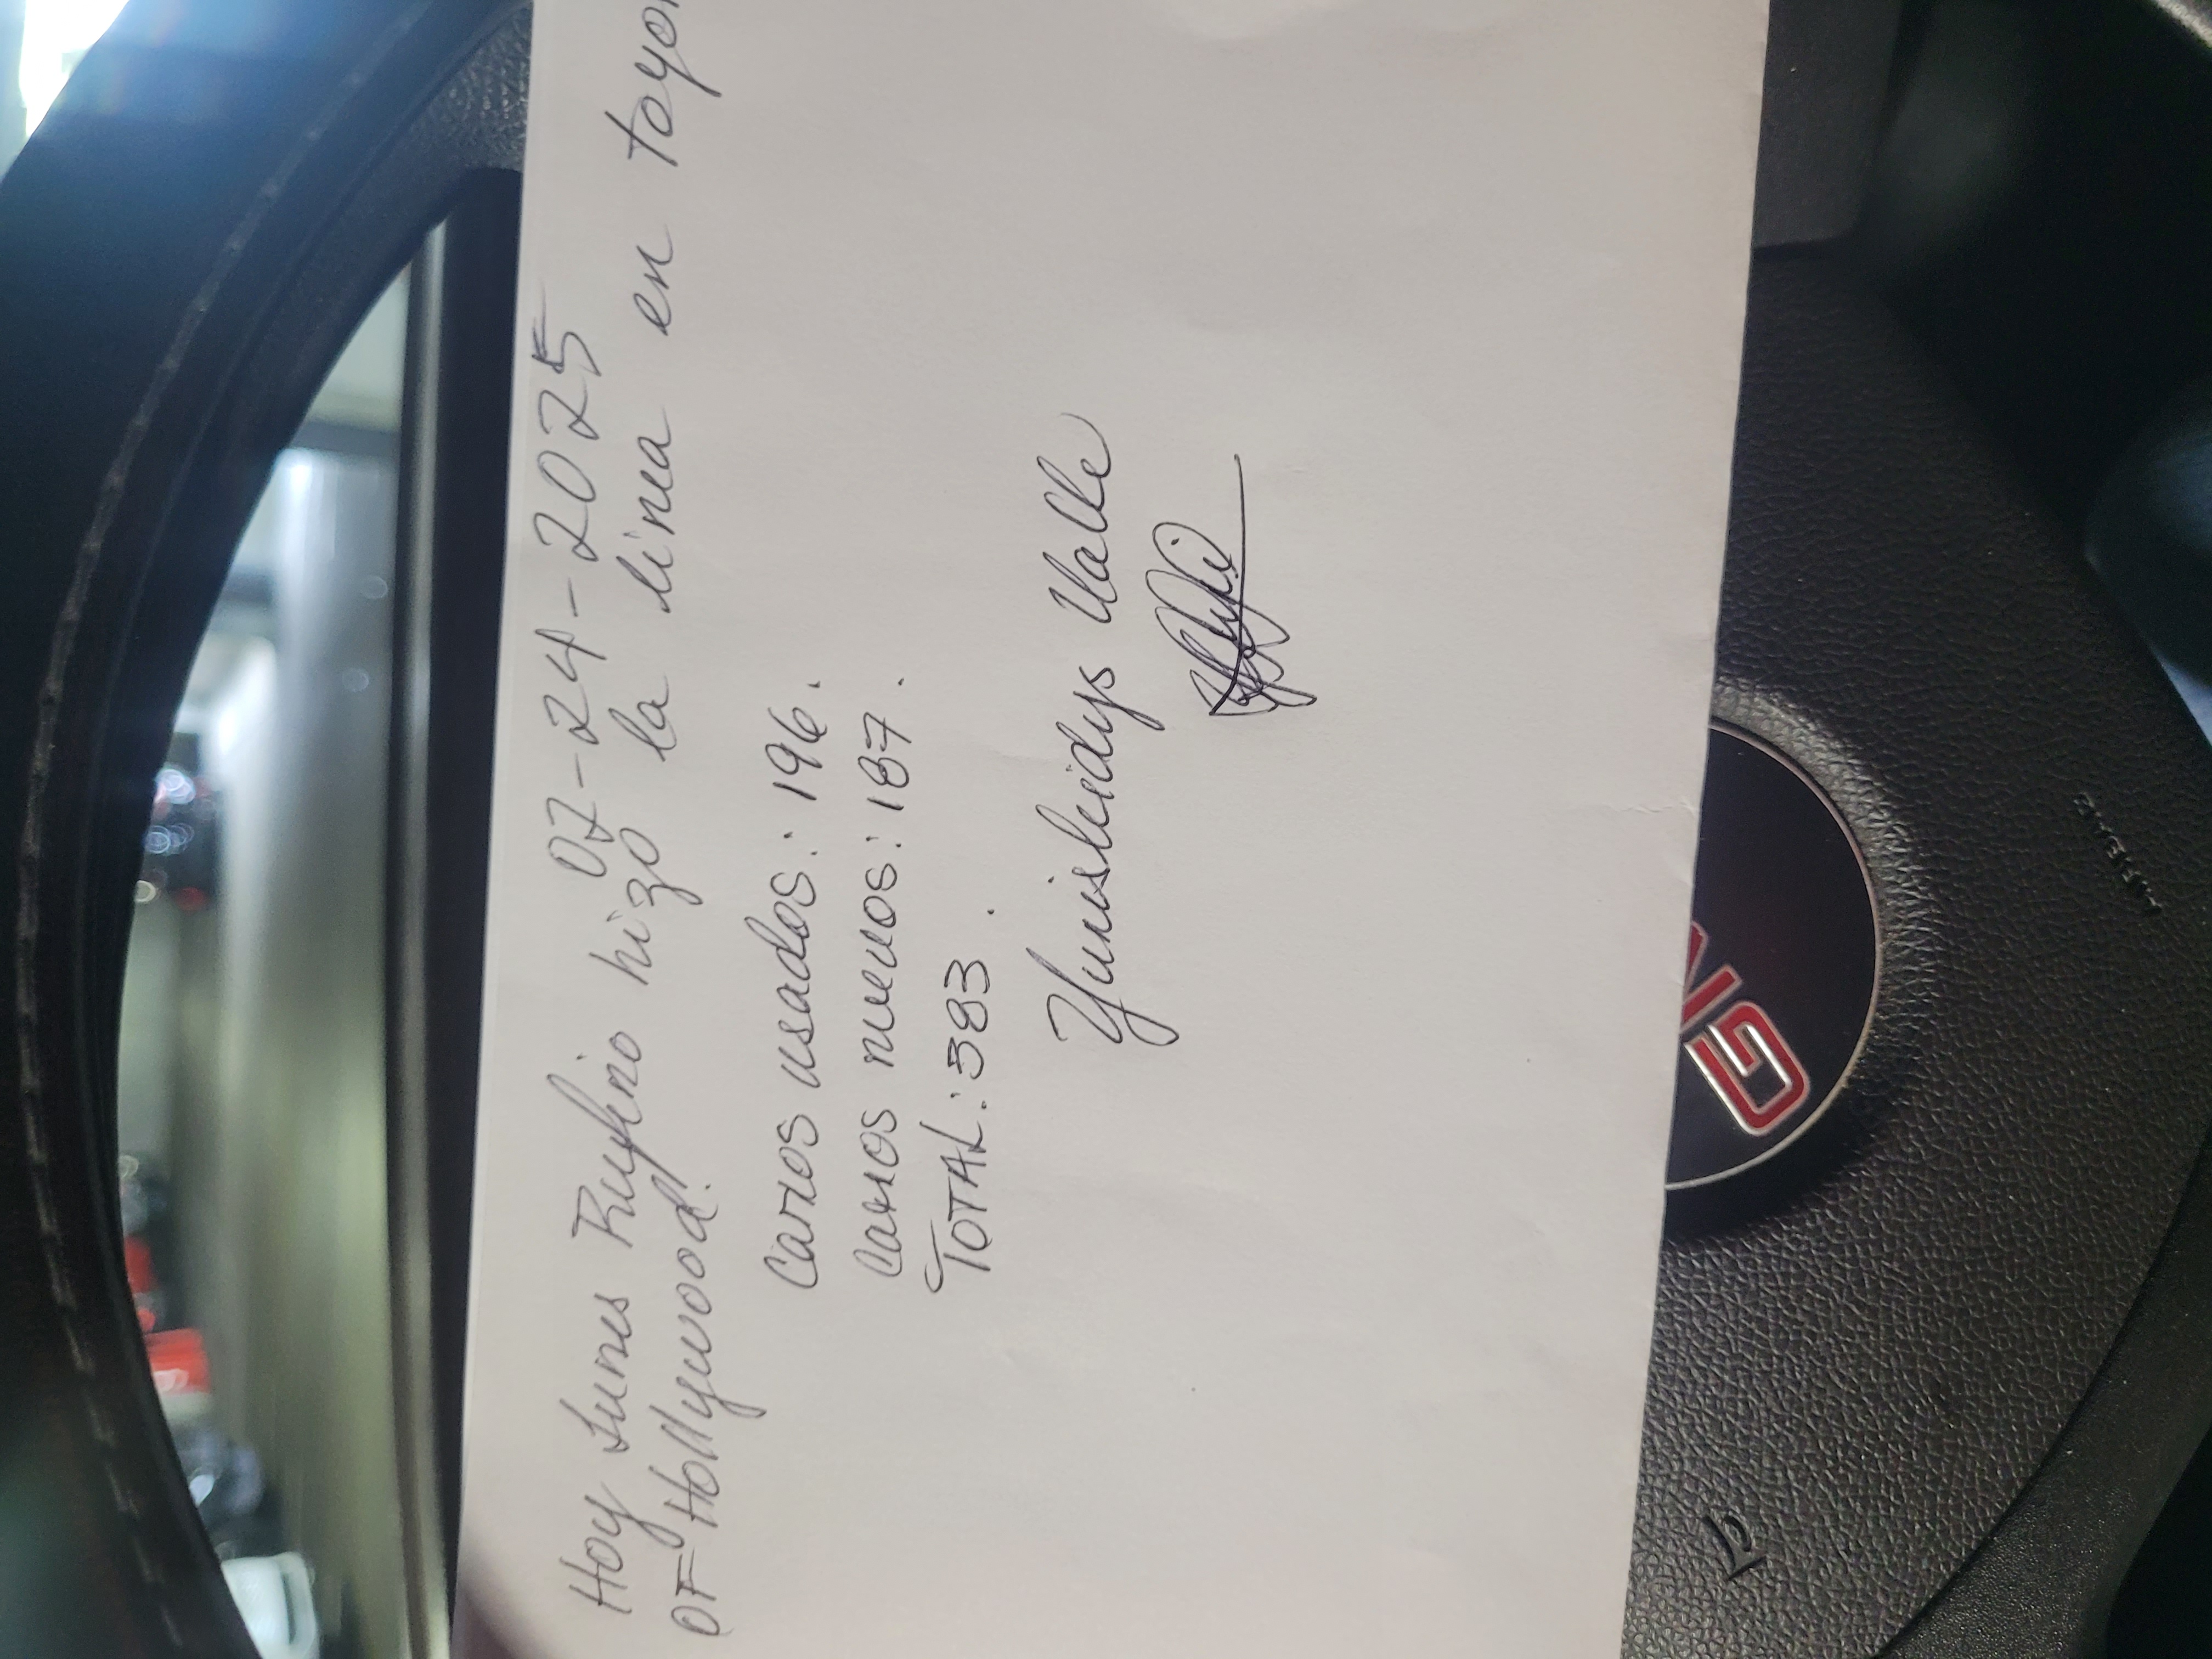 07-24-2025
Hoy Lunes Rufino hizo la linea en toyo
OF Hollywood.
Carros usados: 196.
Carros nuevos: 187.
TOTAL: 383.
Yunisleidys Valle
AIRBAG